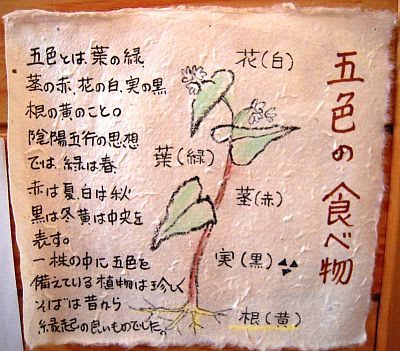 五色の食べ物
五色とは、葉の緑
茎の赤、花の白、実の黒
根の黄のこと。
陰陽五行の思想
では、緑は春、
赤は夏、白は秋
黒は冬、黄は中央を
表す。
一株の中に五色を
備えている植物は珍しく
そばは昔から
縁起の良いものでした。
花(白)
葉(緑)
茎(赤)
実(黒)
根(黄)